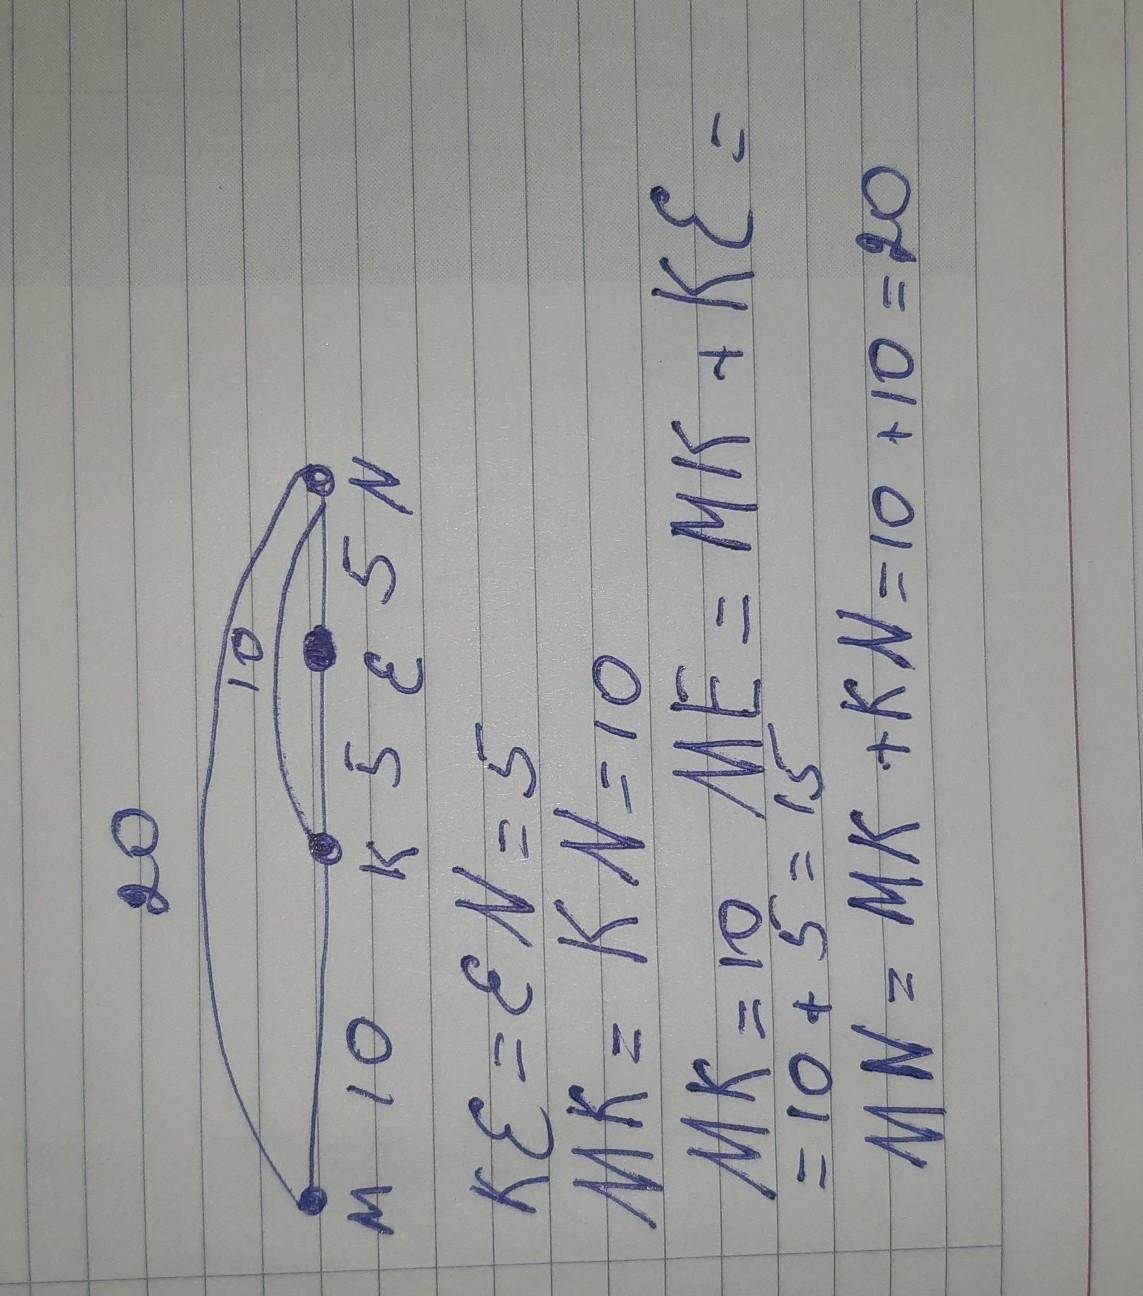 20
10
M 10 K 5 Ɛ 5 N
KƐ = ƐN = 5
MK = KN = 10
MK = 10 ME = MK + KƐ =
= 10 + 5 = 15
MN = MK + KN = 10 + 10 = 20